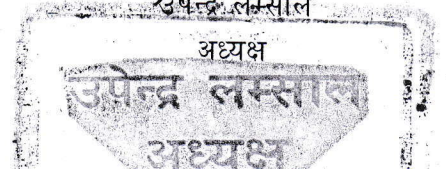 उपेन्द्र लम्साल
अध्यक्ष
उपेन्द्र लम्साल
अध्यक्ष